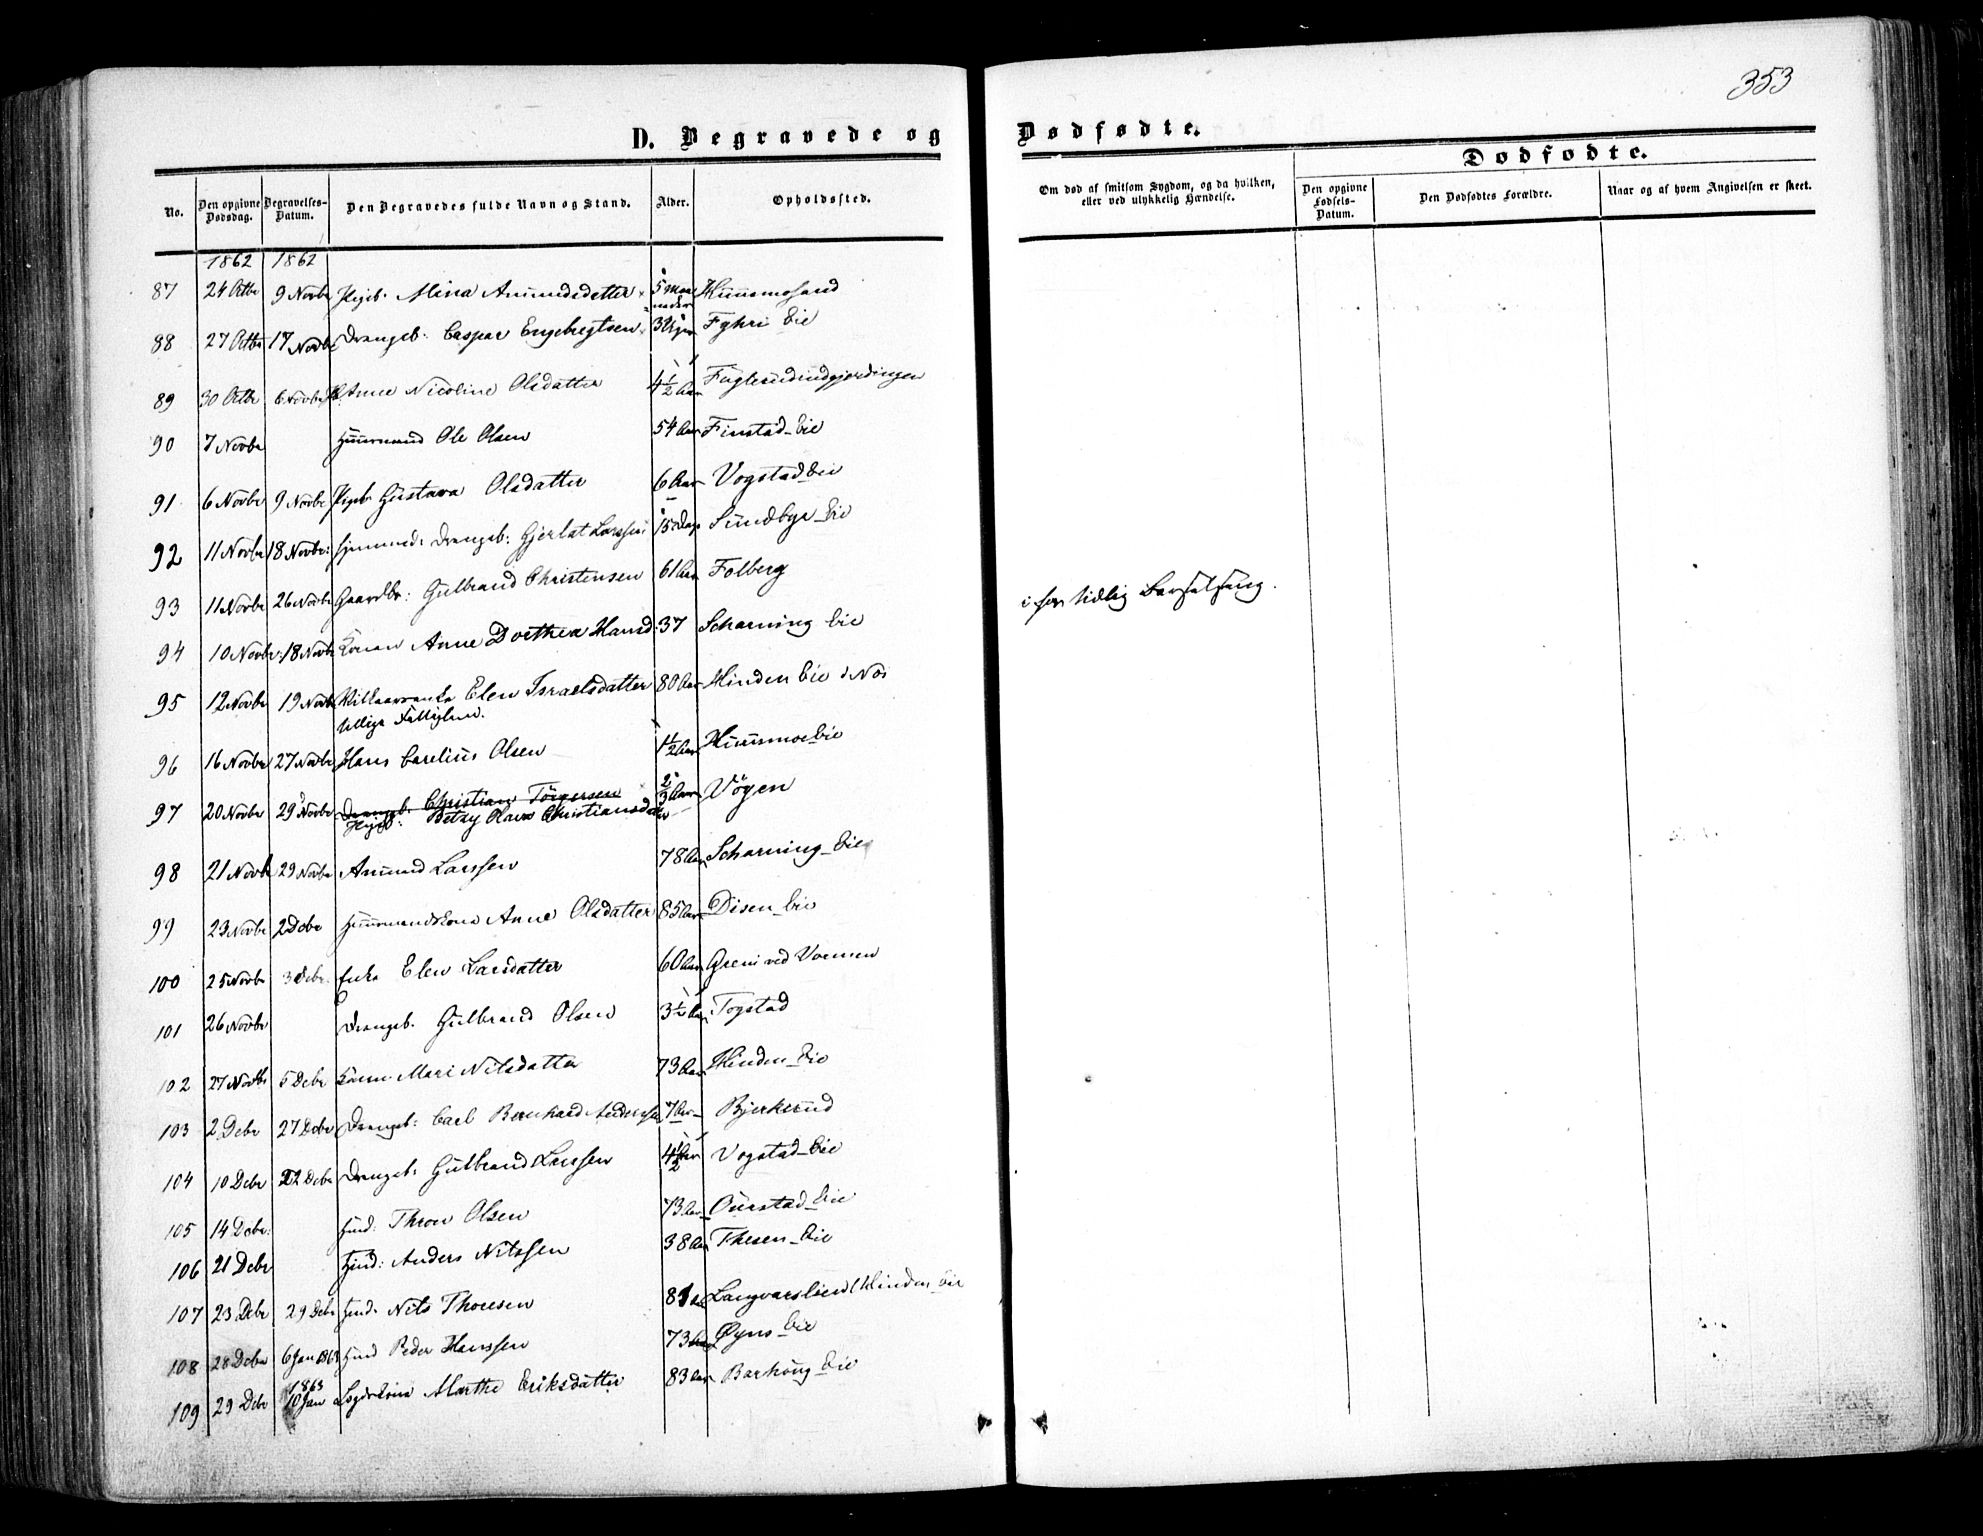 353
D. Begravede og Dødfødte.
Dødfødte.
No. Den opgivne Dødsdag. Begravelses-Datum. Den Begravedes fulde Navn og Stand. Alder. Opholdssted. Om død af smitsom Sygdom, og da hvilken, eller ved ulykkelig Hændelse. Den opgivne Fødsels-Datum. Den Dødfødtes Forældre. Naar og af hvem Angivelsen er skeet.
1862 1862
87 24 Octbr 9 Novbr Pigeb. Mina Amundsdatter 5 Maaneder Hunnemosand
88 27 Octbr 17 Novbr Drengeb. Casper Engebregtsen 3 Uger Fyhri Eie
89 30 Octbr 6 Novbr Anne Nicoline Olsdatter 4½ Aar Fuglerudindgjerdingen
90 7 Novbr Huusmand Ole Olsen 54 Aar Finstad-Eie
91 6 Novbr 9 Novbr Pigeb Gustava Olsdatter 6 Aar Vogstad Eie
92 11 Novbr 18 Novbr: hjemmed: Drengeb: Gjerlat Larssen 15 Dage Sundbye-Eie
93 11 Novbr 26 Novbr Gaardbr: Gulbrand Christensen 61 Aar Folberg
94 10 Novbr 18 Novbr Konen Anne Dorthea Hansd: 37 Scharning Eie i for tidlig Barselseng.
95 12 Novbr 19 Novbr Vilkaarsenke Elen Israelsdatter 80 Aar Minden Eie i Næs
tillige Fattiglem.
96 16 Novbr 27 Novbr Hans Carelius Olsen 1½ Aar Huusmoe Eie
97 20 Novbr 29 Novbr Drengeb. Christian Törgersen 2/3 Aar Vögen
Pigeb: Betzy Olava Christiansdatter
98 21 Novbr 29 Novbr Amund Larssen 78 Aar Scharning-Eie
99 23 Novbr 2 Debr Huusmandskone Anne Olsdatter 85 Aar Disen-Eie
100 25 Novbr 3 Debr. Enke Elen Larsdatter 60 Aar Greni ved Vormen
101 26 Novbr Drengeb. Gulbrand Olsen 3½ Aar Togstad
102 27 Novbr 5 Debr Konen Mari Nilsdatter 73 Aar Minden-Eie
103 2 Debr 27 Debr Drengeb: Carl Bernhard Anderssen 7 Aar Bjerkerud
104 10 Debr 22 Debr Drengeb: Gulbrand Larssen 4½ Aar Vogstad-Eie
105 14 Debr: Huusd: Thron Olsen 73 Aar Ourstad-Eie
106 21 Debr Huusd: Anders Nilssen 38 Aar Thesen-Eie
107 23 Debr 29 Debr Huusd. Nils Thoresen 81 Aar Minden-Eie
108 28 Debr 6 Jan 1863 Huusd Peder Hanssen 73 Aar Øyns-Eie
109 29 Debr 1863 10 Jan Marthe Eriksdatter 83 Aar Barhoug-Eie